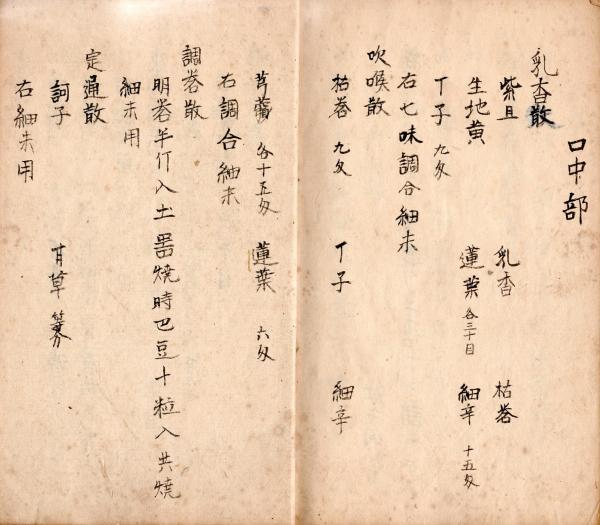 口中部
乳香散
紫且 乳香 枯巻
生地黄 蓮葉 各三十目 細辛 十五匁
丁子 九匁
右七味調合細末
吹喉散
枯巻 九匁 丁子 細辛
各十五匁 蓮葉 六匁
右調合細末
調巻散
明巻半斤入土器焼時巴豆十粒入共焼
細末用
定通散
訶子 甘草
右細末用